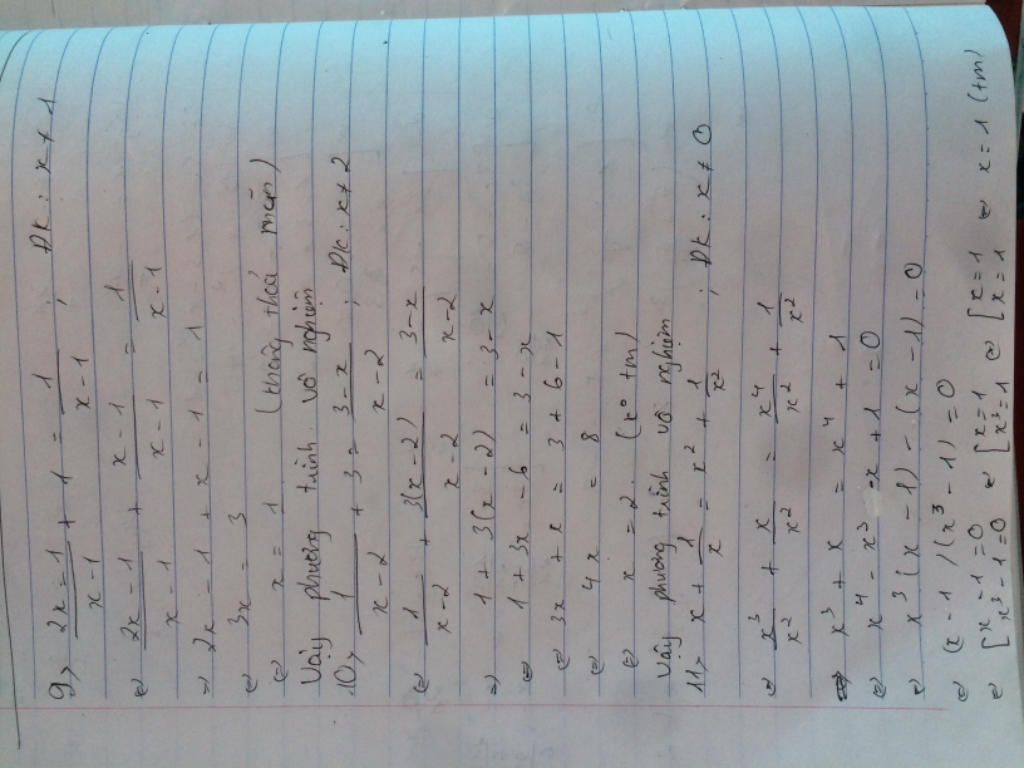 9> (2x-1)/(x-1) + 1 = 1/(x-1) ; ĐK: x ≠ 1
⇔ (2x-1)/(x-1) + (x-1)/(x-1) = 1/(x-1)
⇒ 2x - 1 + x - 1 = 1
⇔ 3x = 3
⇔ x = 1 (không thoả mãn)
Vậy phương trình vô nghiệm
10> 1/(x-2) + 3 = (3-x)/(x-2) ; ĐK: x ≠ 2
⇔ 1/(x-2) + 3(x-2)/(x-2) = (3-x)/(x-2)
⇒ 1 + 3(x-2) = 3 - x
⇔ 1 + 3x - 6 = 3 - x
⇔ 3x + x = 3 + 6 - 1
⇔ 4x = 8
⇔ x = 2. (k° tm)
Vậy phương trình vô nghiệm
11> x + 1/x = x² + 1/x² ; ĐK: x ≠ 0
⇔ x³/x² + x/x² = x⁴/x² + 1/x²
⇒ x³ + x = x⁴ + 1
⇔ x⁴ - x³ - x + 1 = 0
⇔ x³(x-1) - (x-1) = 0
⇔ (x-1)(x³-1) = 0
⇔ [x-1=0 [x³-1=0 ⇔ [x=1 [x³=1 ⇔ [x=1 [x=1 ⇔ x=1 (tm)